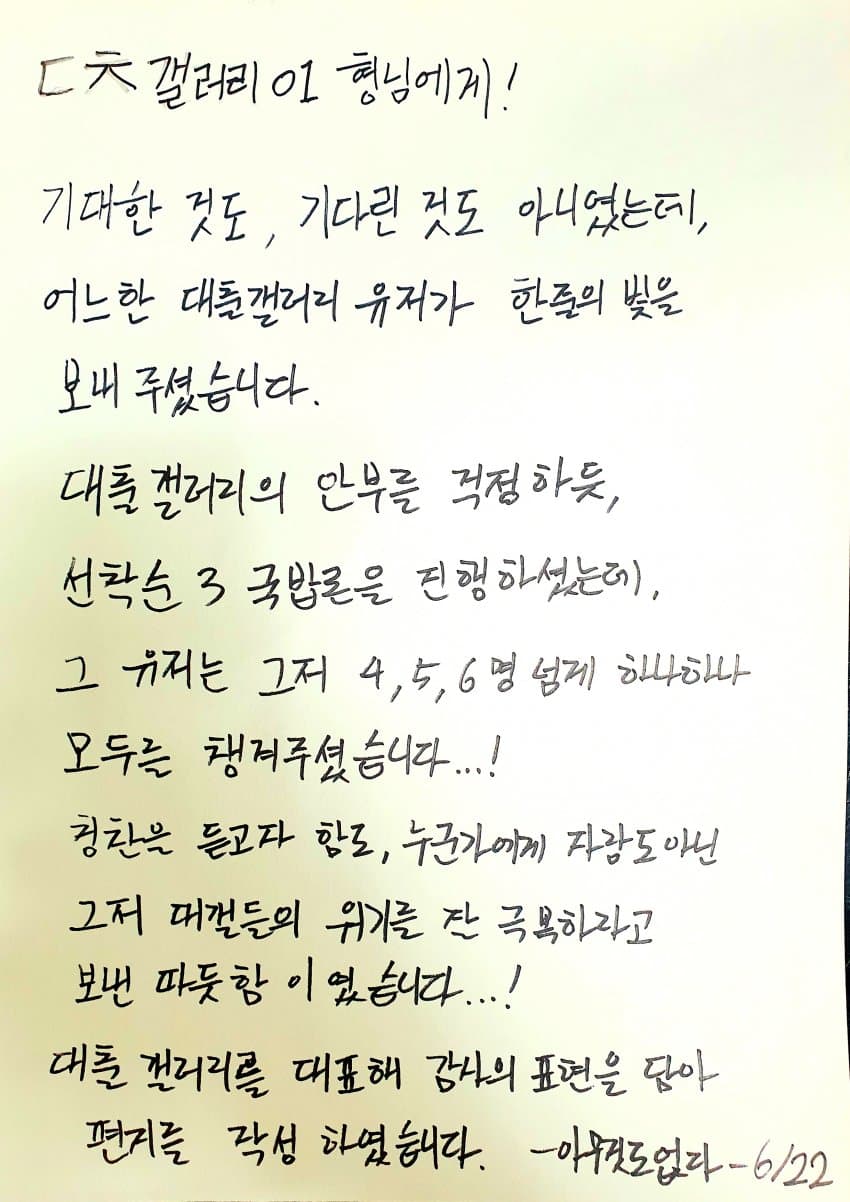 ㄷㅊ갤러리 01 형님에게!
기대한 것도, 기다린 것도 아니였는데,
어느한 대출갤러리 유저가 한줄의 빛을
보내 주셨습니다.
대출갤러리의 안부를 걱정하듯,
선착순 3 국밥론을 진행하셨는데,
그 유저는 그저 4,5,6명 넘게 하나하나
모두를 챙겨주셨습니다...!
칭찬을 듣고자 함도, 누군가에게 자랑도아닌
그저 대갤들의 위기를 잘 극복하라고
보낸 따듯함 이였습니다...!
대출 갤러리를 대표해 감사의 표현을 담아
편지를 작성 하였습니다. -아무것도없다-6/22